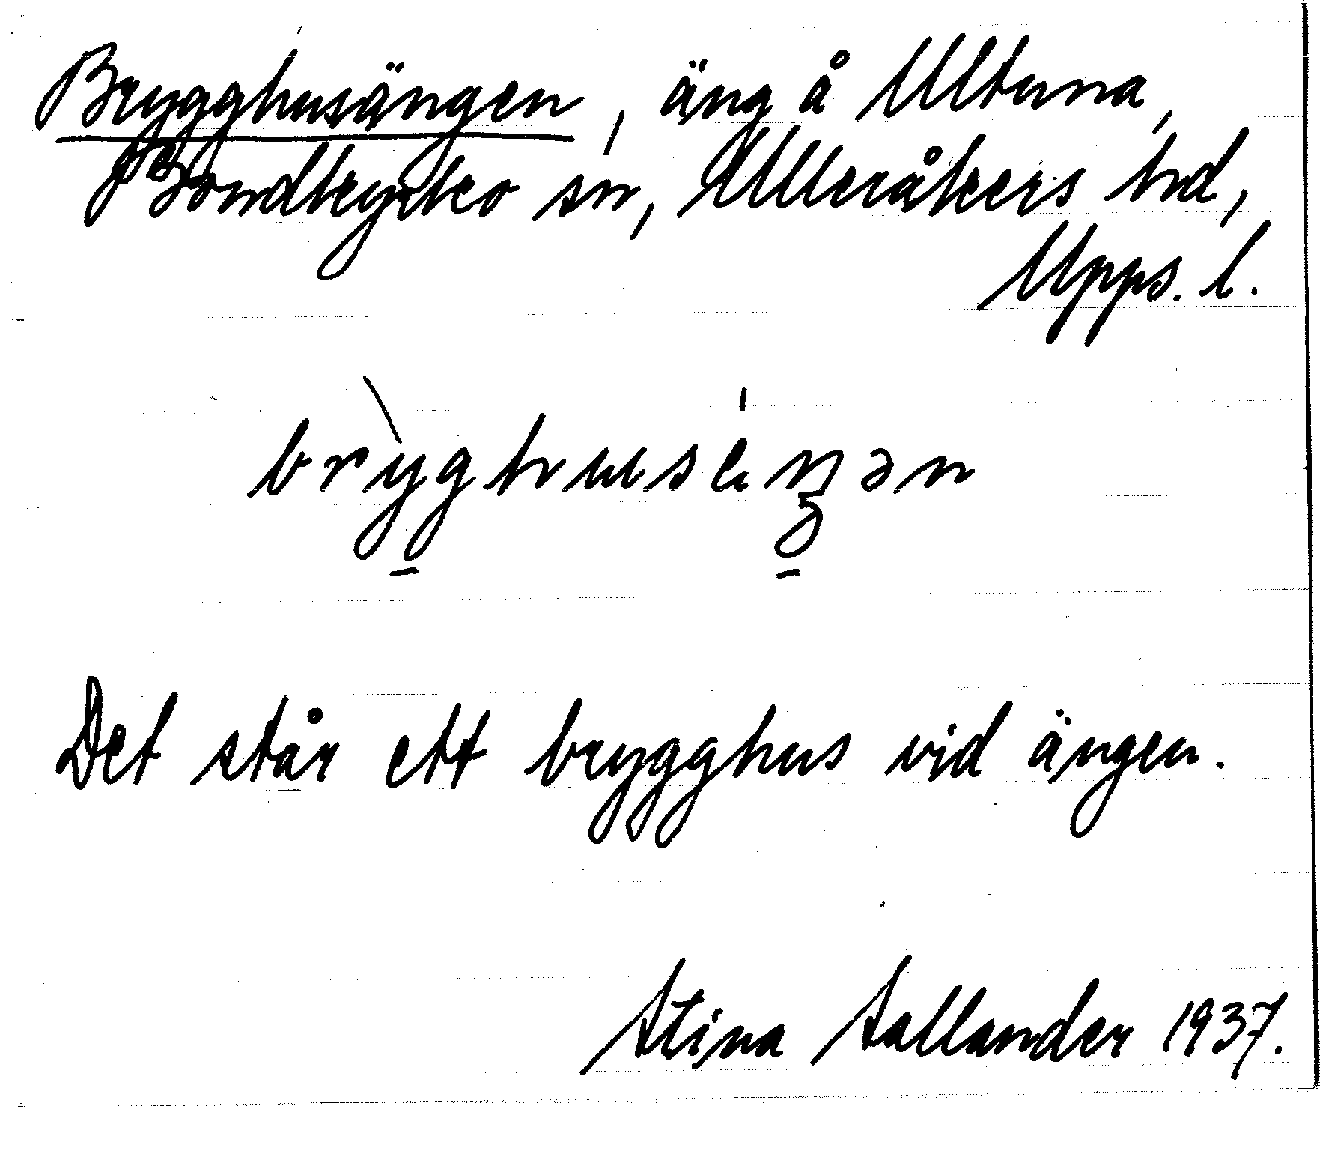 Brygghusängen, äng å Ultuna,
Bondkyrko sn, Ulleråkers hd,
Upps. l.
bry̆ghusäŋən
Det står ett brygghus vid ängen.
Stina Sallander 1937.